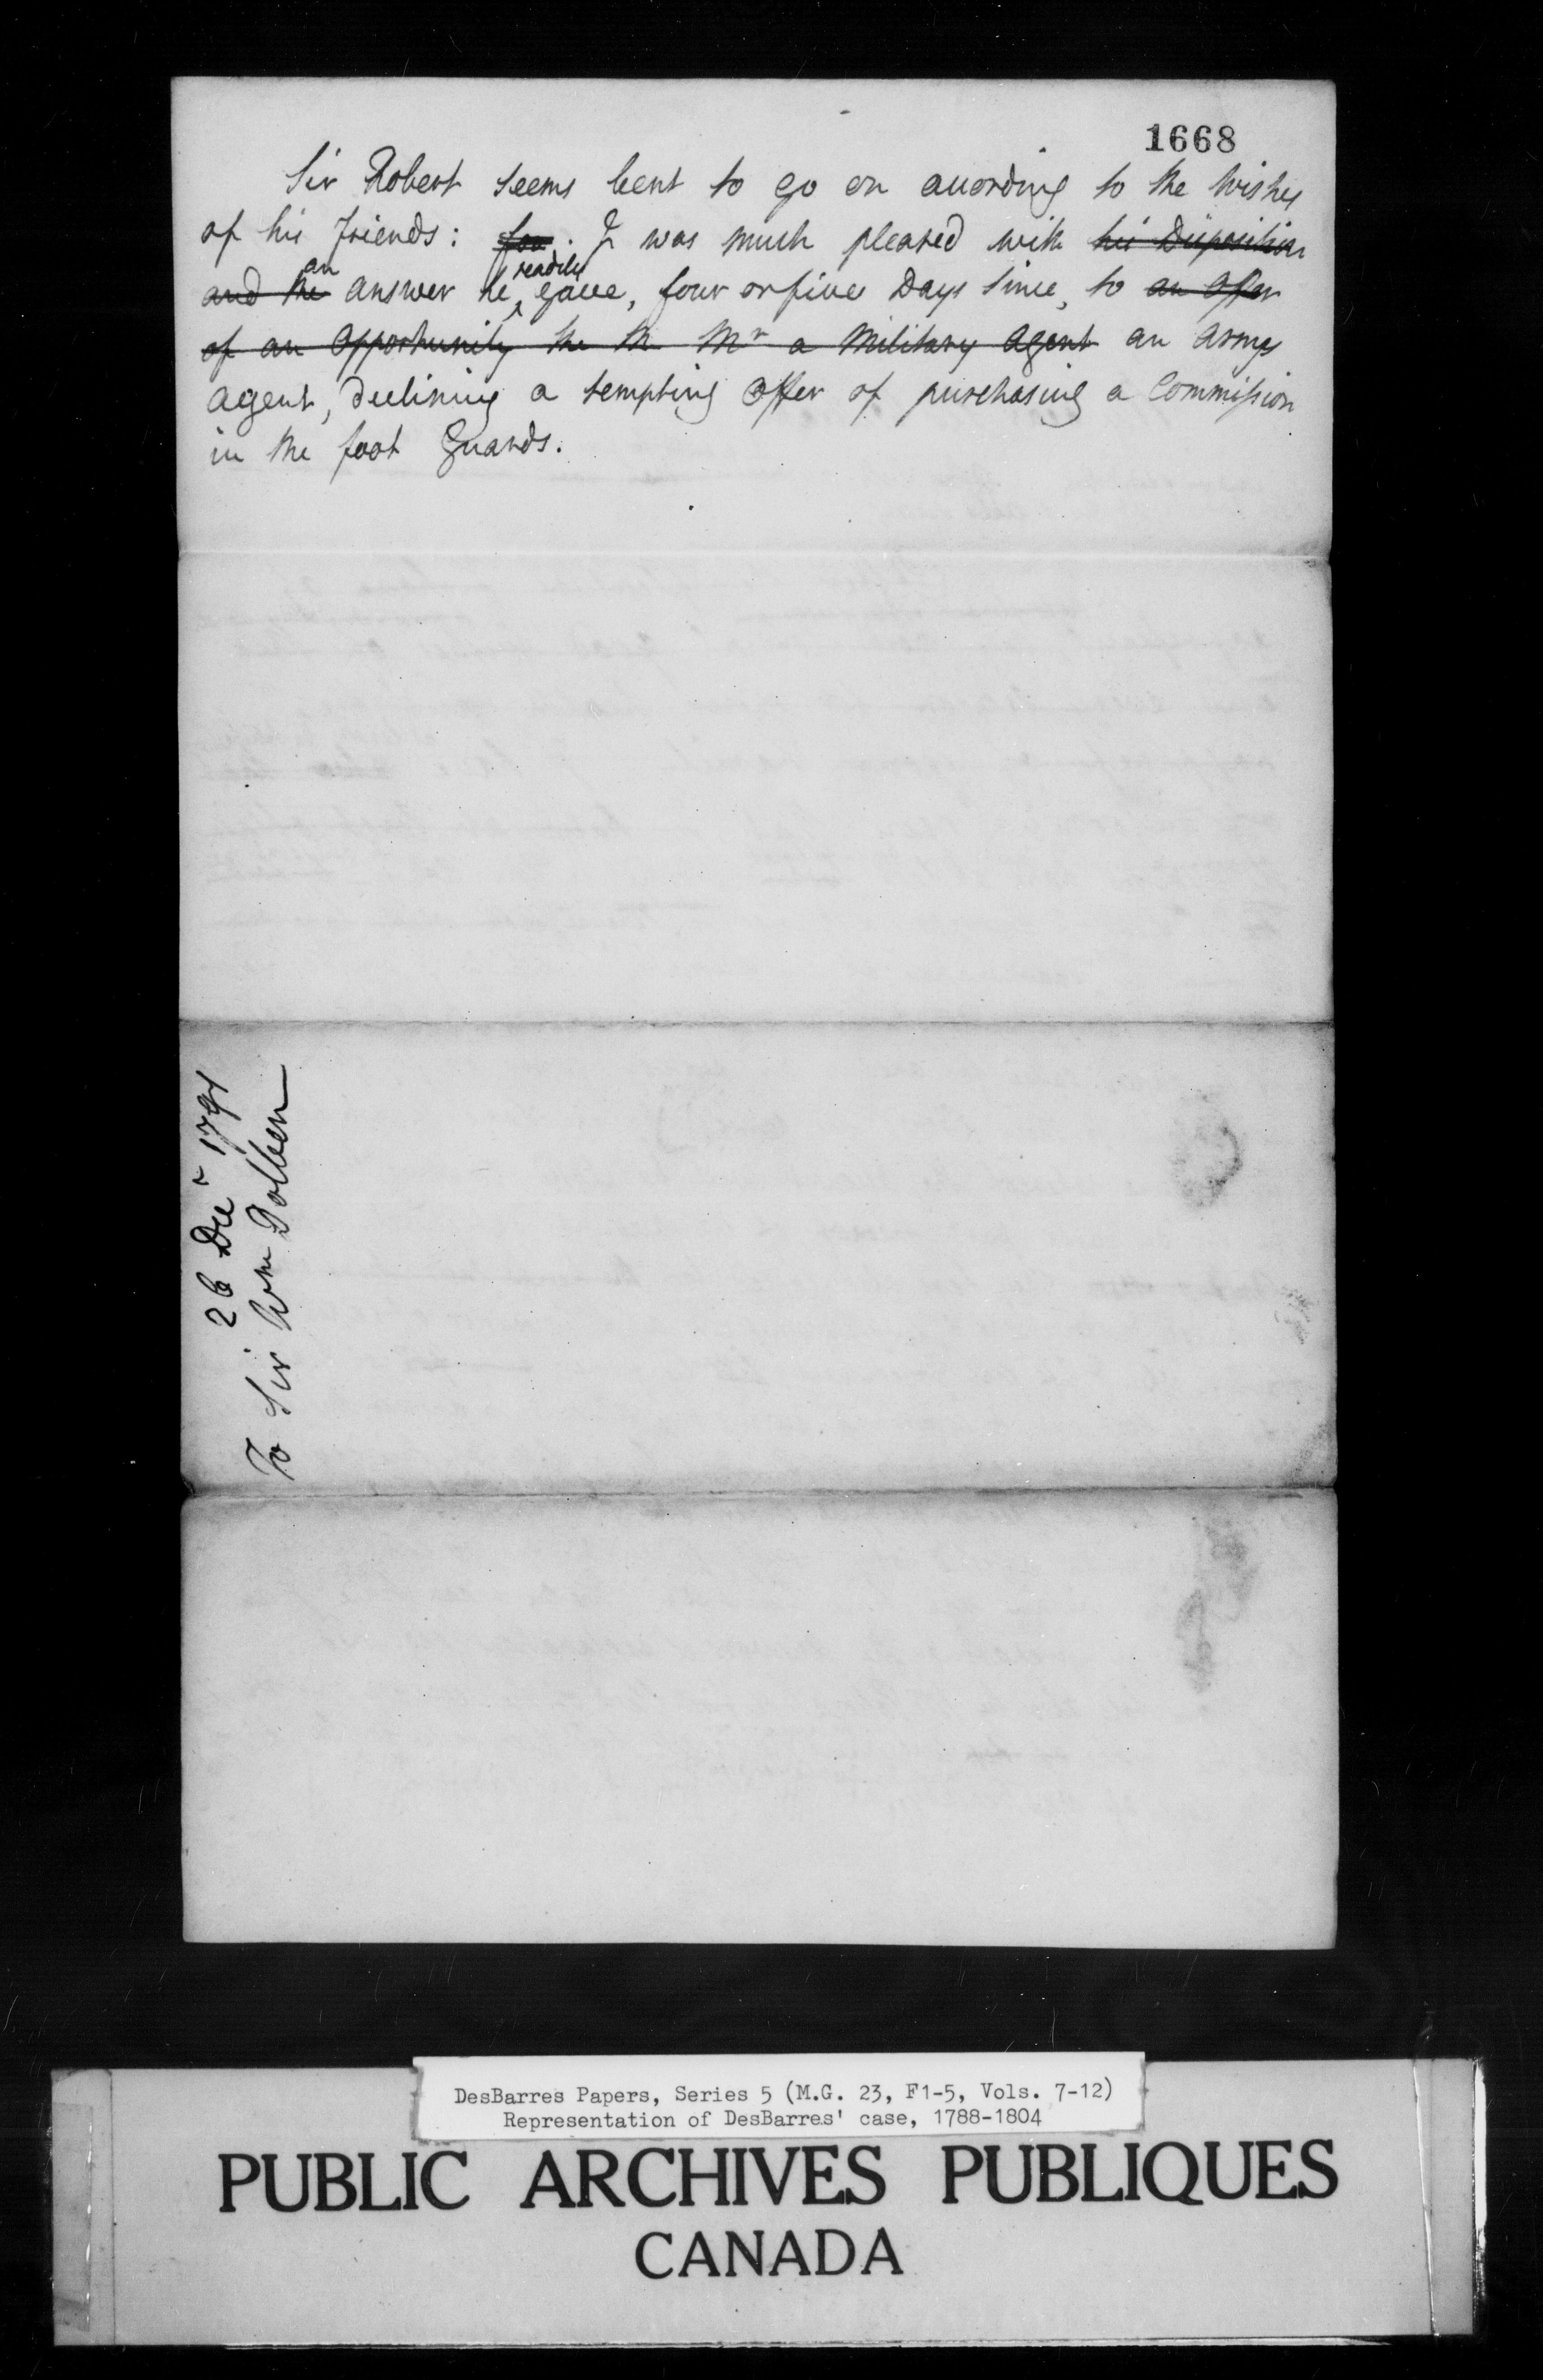 1668
Sir Robert seems bent to go on according to the Wishes
of his Friends: for. I was much pleased with his Disposition
and the an answer he readily gave, four or five Days since, to an offer
of an Opportunity the M Mr a Military Agent an Army
Agent, declining a tempting Offer of purchasing a Commission
in the foot Guards.
26 Decr 1791
To Sir Wm Dolben
DesBarres Papers, Series 5 (M.G. 23, F1-5, Vols. 7-12)
Representation of DesBarres' case, 1788-1804
PUBLIC ARCHIVES PUBLIQUES
CANADA